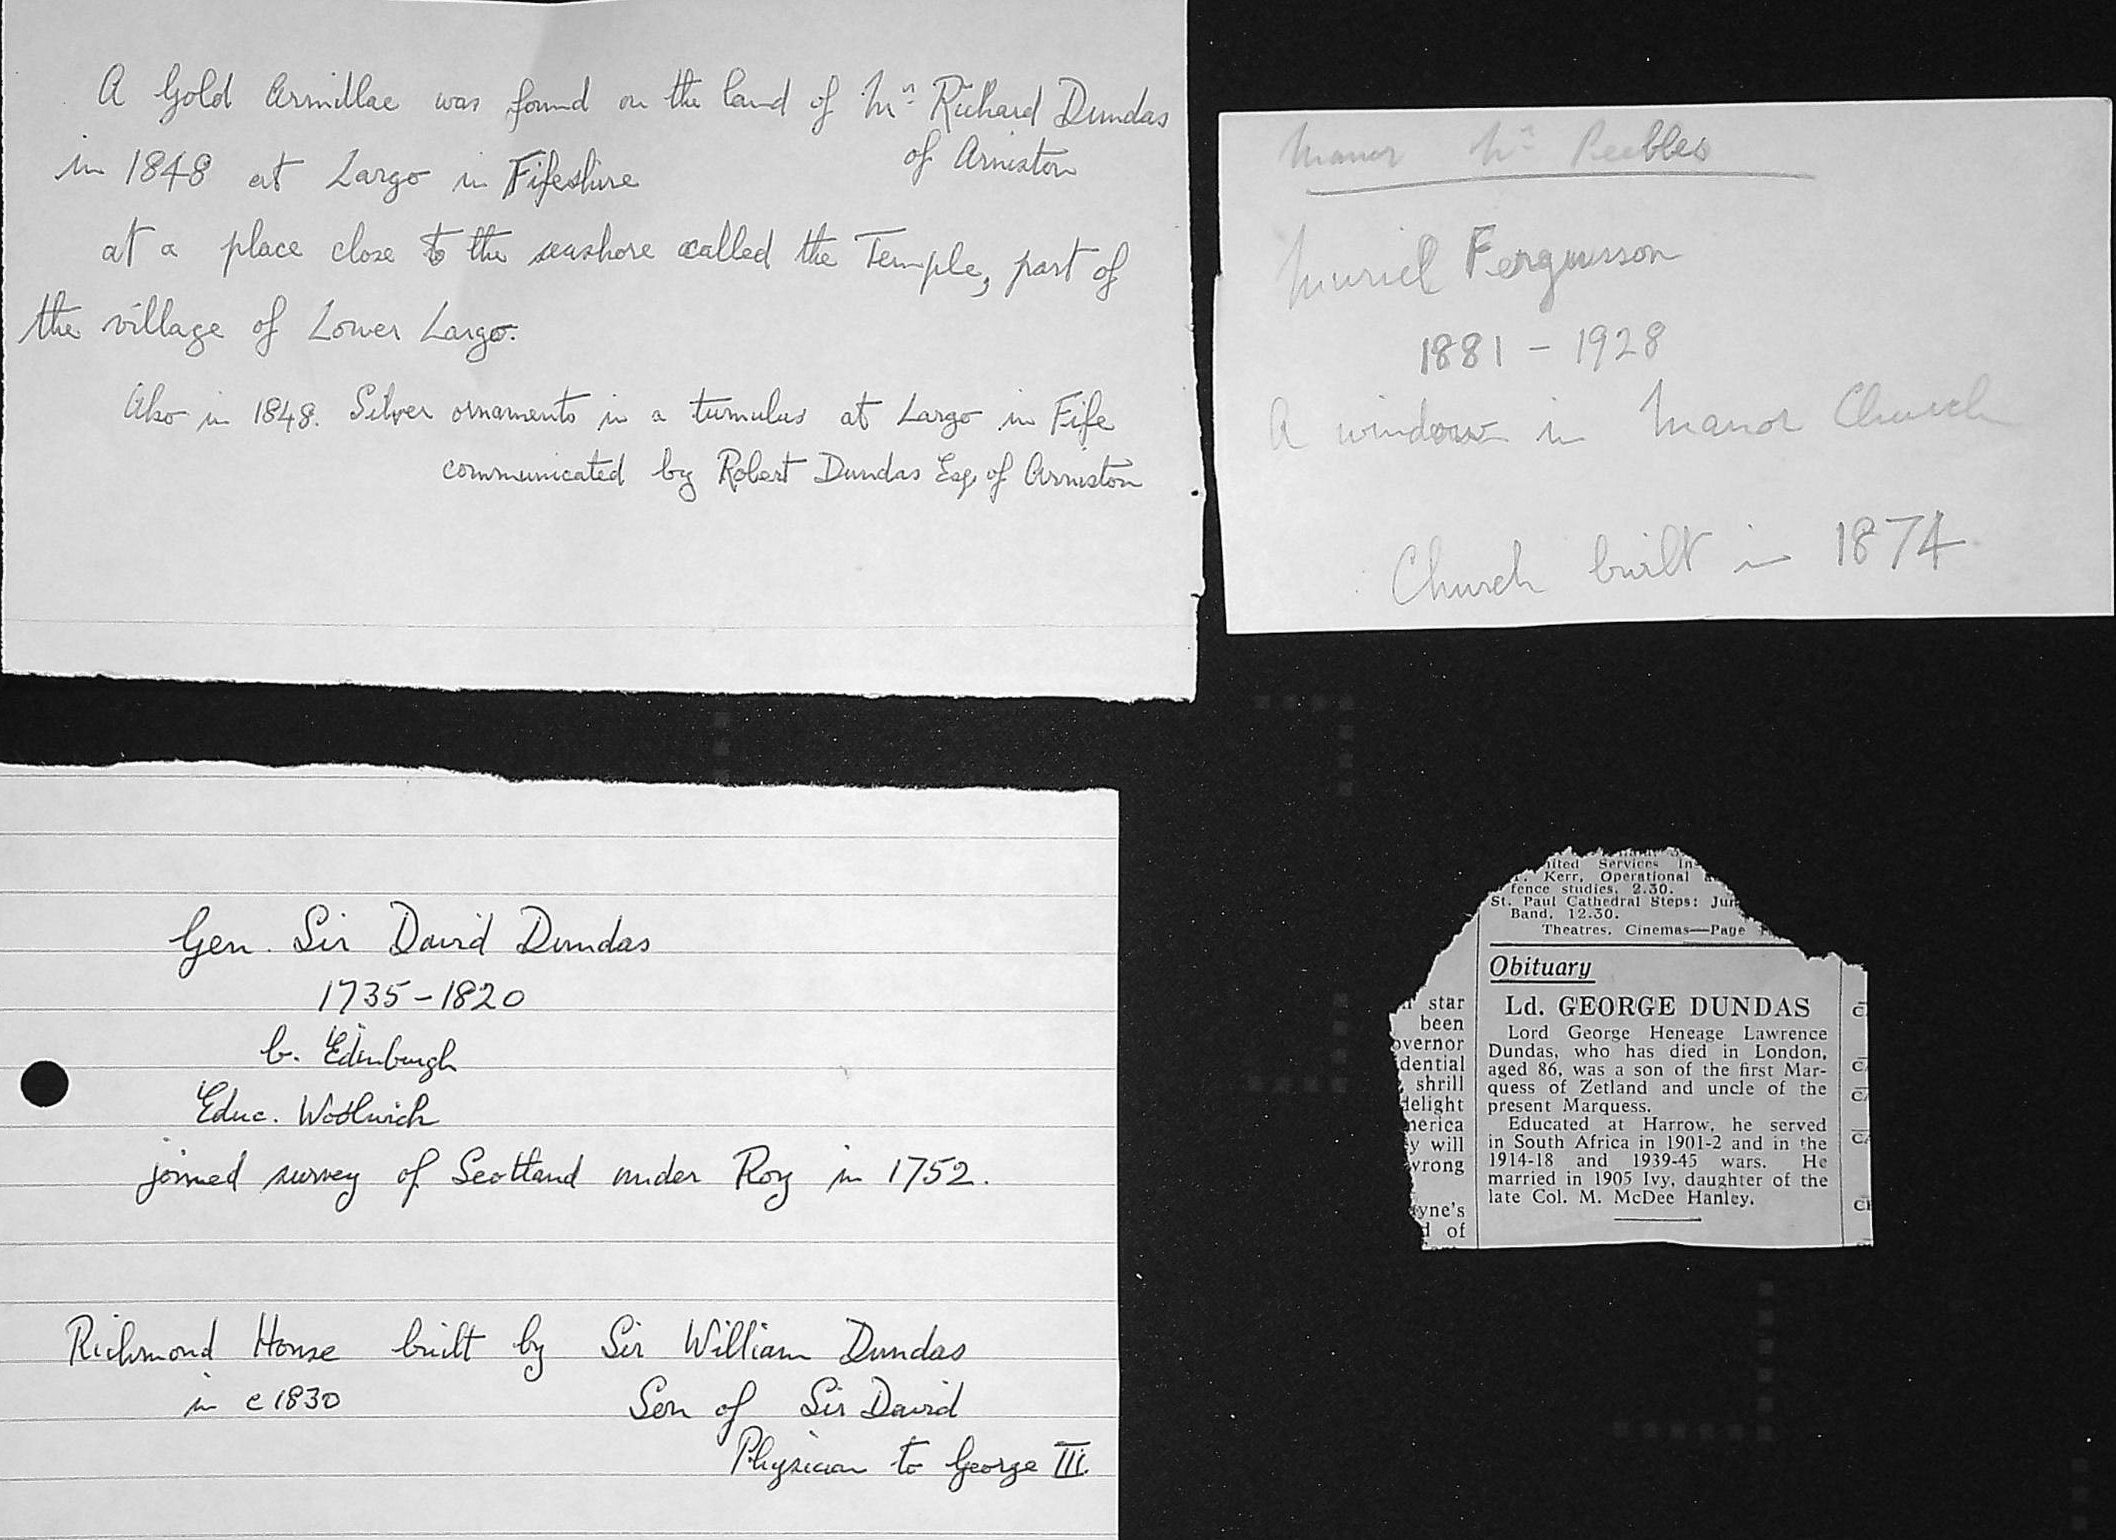 A Gold Armillae was found on the land of Mr Richard Dundas
of Arniston
in 1848 at Largo in Fifeshire
at a place close to the seashore called the Temple, part of
the village of Lower Largo.
Also in 1848. Silver ornaments in a tumulus at Largo in Fife
communicated by Robert Dundas Esq. of Arniston
Manor Nr Peebles
Muriel Fergusson
1881 - 1928
A window in Manor Church
Church built in 1874
Gen. Sir David Dundas
1735-1820
b. Edinburgh
Educ. Woolwich
joined survey of Scotland under Roy in 1752.
Richmond House built by Sir William Dundas
in c 1830
Son of Sir David
Physician to George III.
Services
Kerr, Operational
fence studies, 2.30.
St. Paul Cathedral Steps:
Band, 12.30.
Theatres, Cinemas—Page
Obituary
Ld. GEORGE DUNDAS
Lord George Heneage Lawrence
Dundas, who has died in London,
aged 86, was a son of the first Mar-
quess of Zetland and uncle of the
present Marquess.
Educated at Harrow, he served
in South Africa in 1901-2 and in the
1914-18 and 1939-45 wars. He
married in 1905 Ivy, daughter of the
late Col. M. McDee Hanley.
star
been
overnor
dential
shrill
delight
merica
y will
wrong
yne's
d of